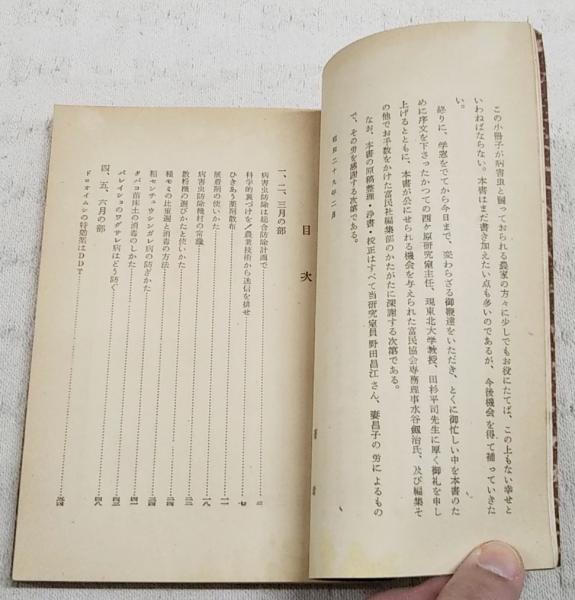 この小冊子が病害虫と闘っておられる農家の方々に少しでもお役にたてば、この上もない幸せと
いわねばならない。本書はまだ書き加えたい点も多いのであるが、今後機会を得て補っていきた
い。
終りに、学窓をでてから今日まで、変わらざる御鞭達をいただき、とくに御忙しい中を本書のた
めに序文を下さったかつての西ケ原研究室主任、現東北大学教授、田杉平司先生に厚く御礼を申し
上げるとともに、本書が公にせられる機会を与えられた富民協会専務理事水谷氏、及び編集そ
の他でお手数をかけた富民社編集部のかたがたに深謝する次第である。
なお、本書の原稿整理・浄書・校正はすべて当研究室員野田昌江さん、妻昌子の労によるもの
で、その労を感謝する次第である。
昭和二十九年二月
目次
一、二、三月の部
病害虫防除は総合防除計画で
科学的裏づけを／農業技術から迷信を排せ 七
ひきあう薬剤散布 一一
展着剤の使いかた 一八
病害虫防除機材の常識
散粉機の選びかたと使いかた
種モミの比重選と消毒の方法
稲センチュウシンガレ病の防ぎかた
タバコ苗床土の消毒のしかた 四一
バレイショのワグサレ病はどう防ぐ 四三
四、五、六月の部 四八
ドロオイムシの特効薬はDDT